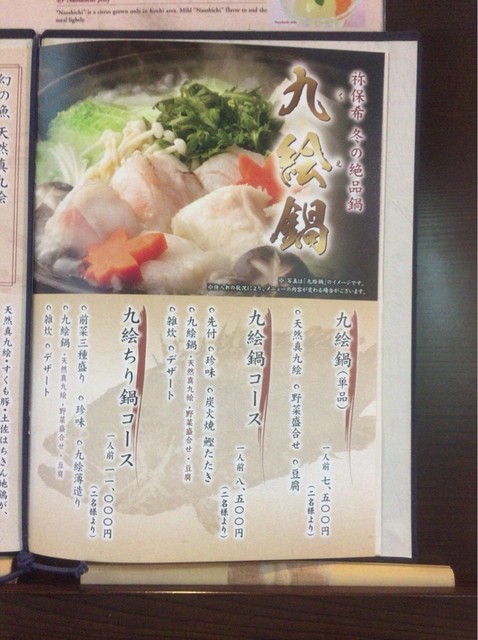 "Naoshichi" is a citrus grown only in Kochi area. Mild "Naoshichi" flavor to end the
meal lightly.
祢保希 冬の絶品鍋
九絵鍋
くえ
※写真は「九絵鍋」のイメージです。
※仕入れの状況により、メニューの内容が変わる場合がございます。
九絵鍋(単品)
一人前 七、五〇〇円
(二名様より)
天然真九絵 野菜盛合せ 豆腐
九絵鍋コース
一人前 八、五〇〇円
(二名様より)
先付 珍味 炭火焼 鰹たたき
九絵鍋・天然真九絵・野菜盛合せ・豆腐
雑炊 デザート
九絵ちり鍋コース
一人前 一一、〇〇〇円
(二名様より)
前菜三種盛り 珍味 九絵薄造り
九絵鍋・天然真九絵・野菜盛合せ・豆腐
雑炊 デザート
幻の魚 天然真九絵
天然真九絵・すくも豚・土佐はちきん地鶏が、